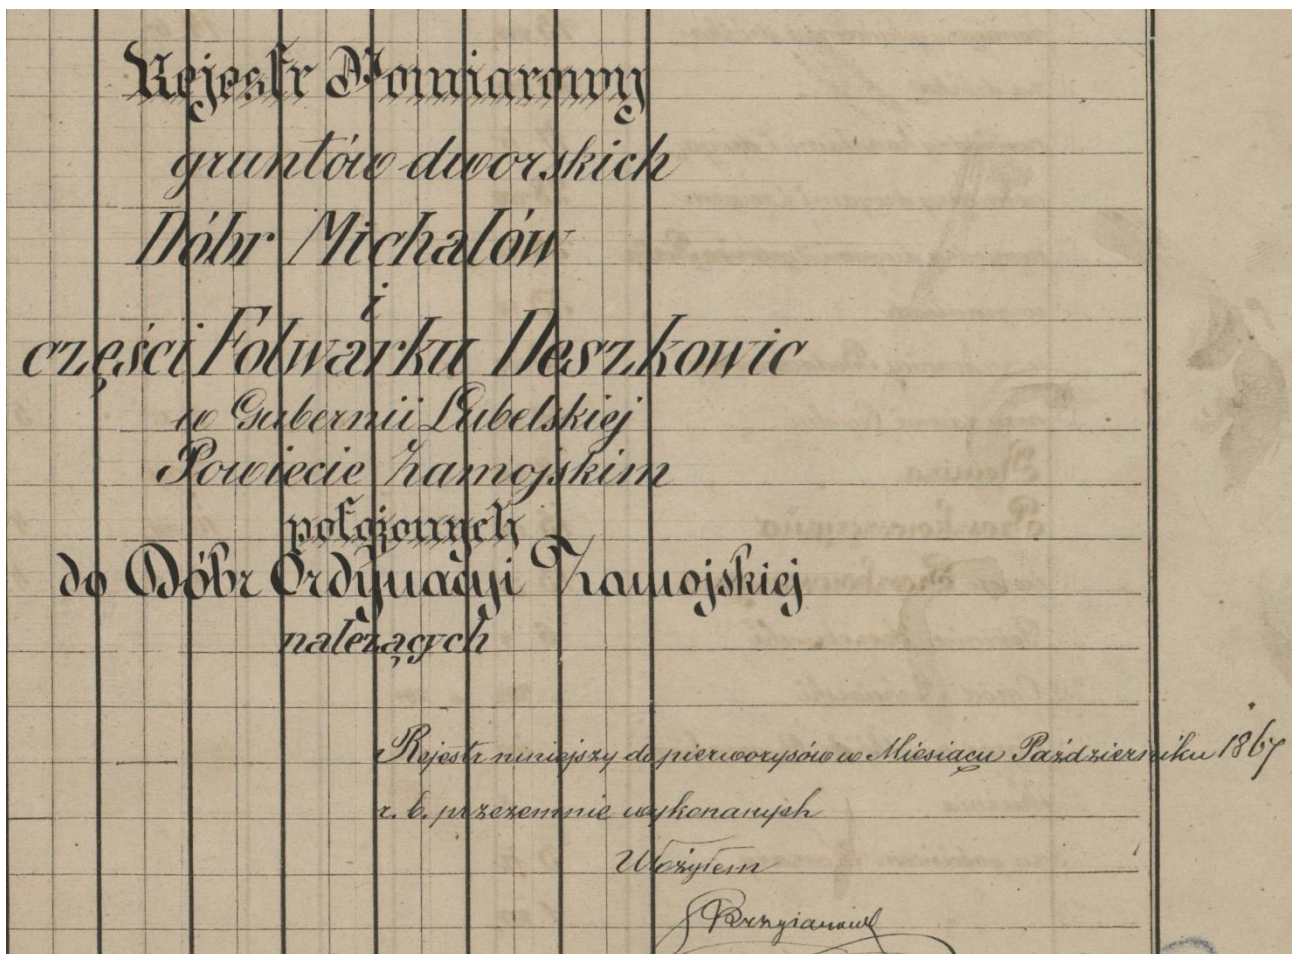 Rejestr Pomiarowy
gruntów dworskich
Dóbr Michalów
i
części Folwarku Deszkowic
w Gubernii Lubelskiej
Powiecie Zamojskim
położonych
do Dóbr Ordynacyi Zamojskiej
należących
Rejestr niniejszy do pierworysów w Miesiącu Październiku 1867
r. b. przezemnie wykonanych
Ułożyłem